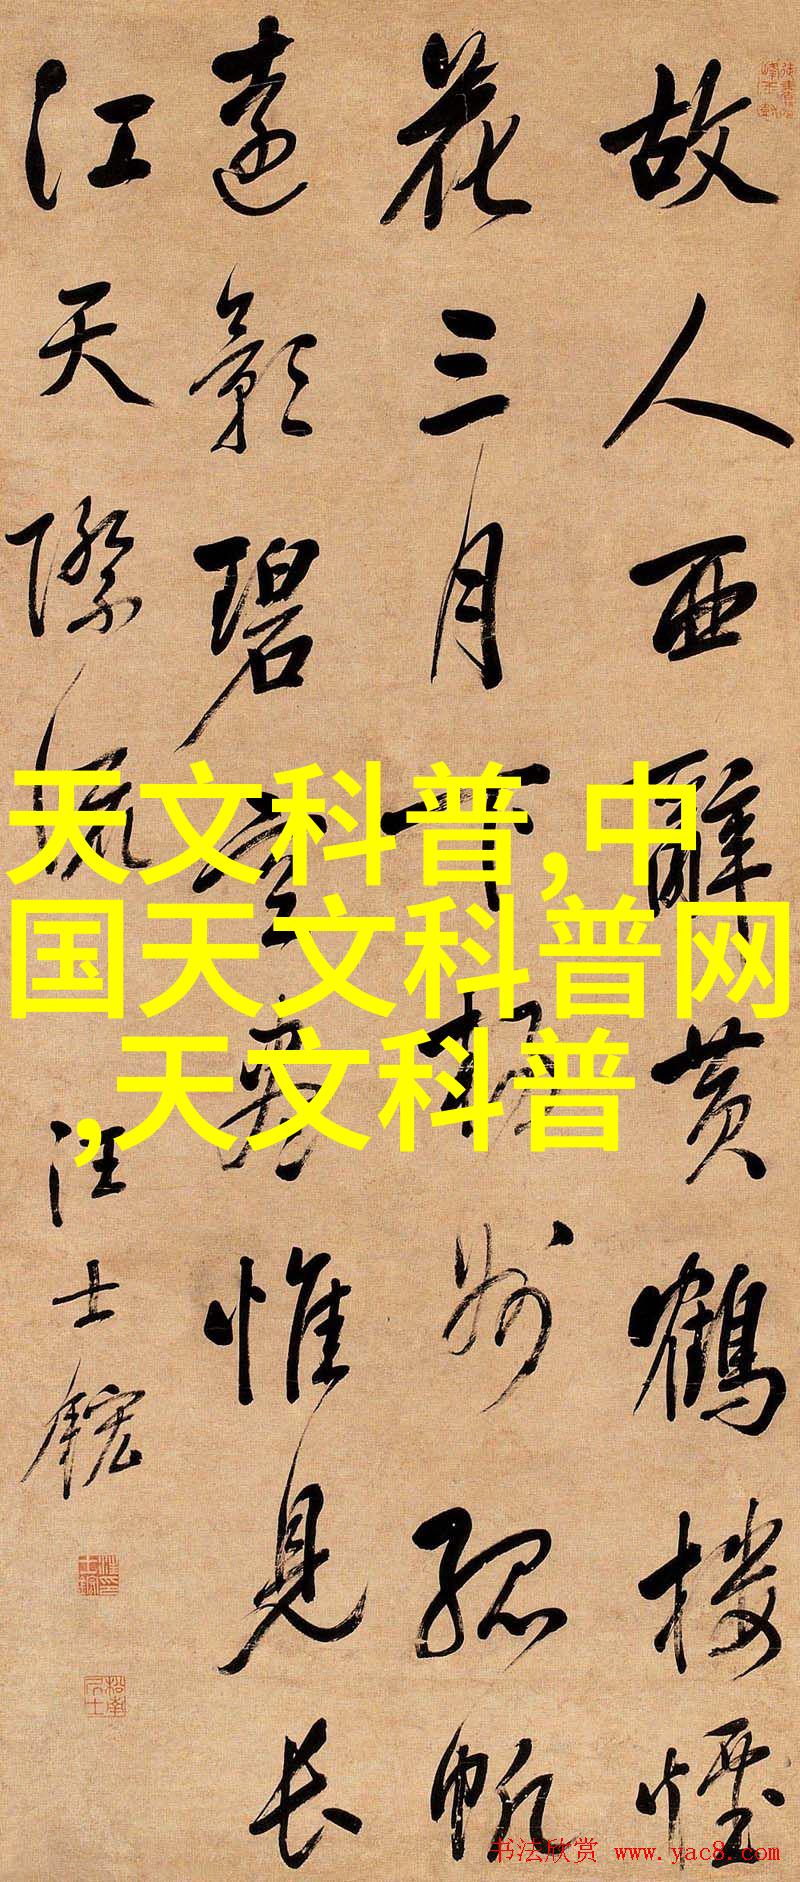 故人西辞黄鹤楼烟
花三月下扬州孤帆
远影碧空尽惟见长
江天际流
汪士鋐
天文科普,中
国天文科普网
,天文科普
书法欣赏 www.yac8.com